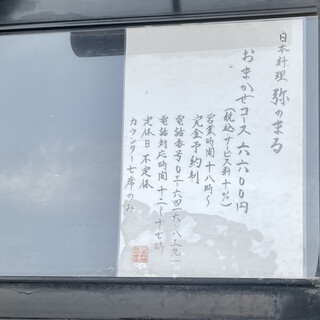 日本料理 弥のまる
おまかせコース 六六〇〇円
(税込 サービス料十%)
営業時間 十八時〜
完全予約制
電話番号 〇三・六四一六・八三九一
電話対応時間 十二〜十七時
定休日 不定休
カウンター七席のみ